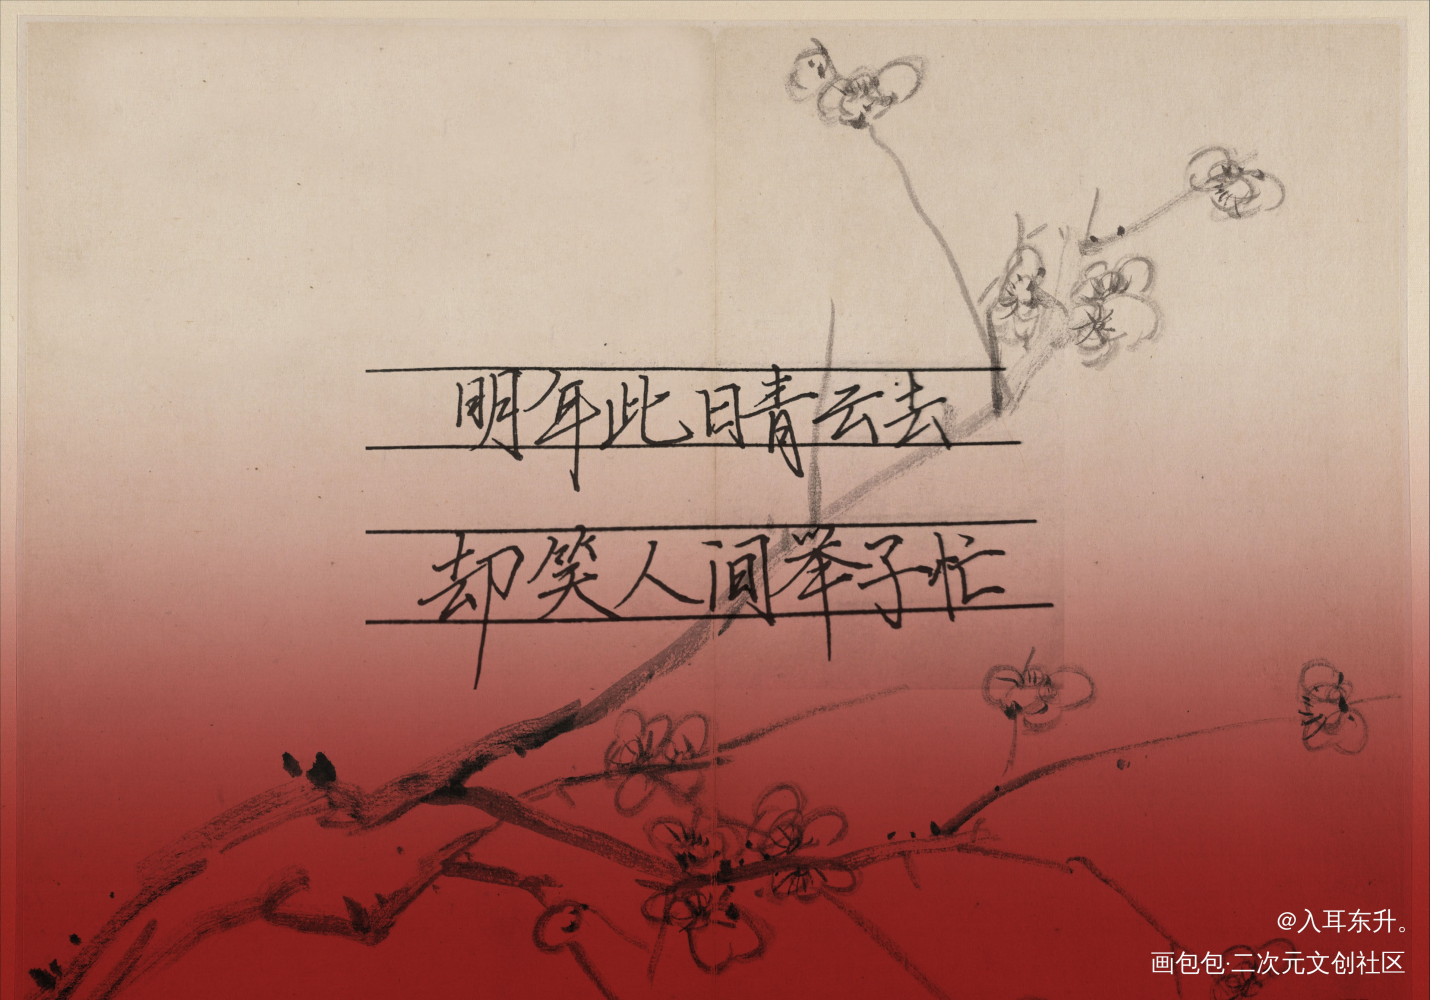 明年此日青云去
却笑人间举子忙
@入耳东升。
画包包·二次元文创社区